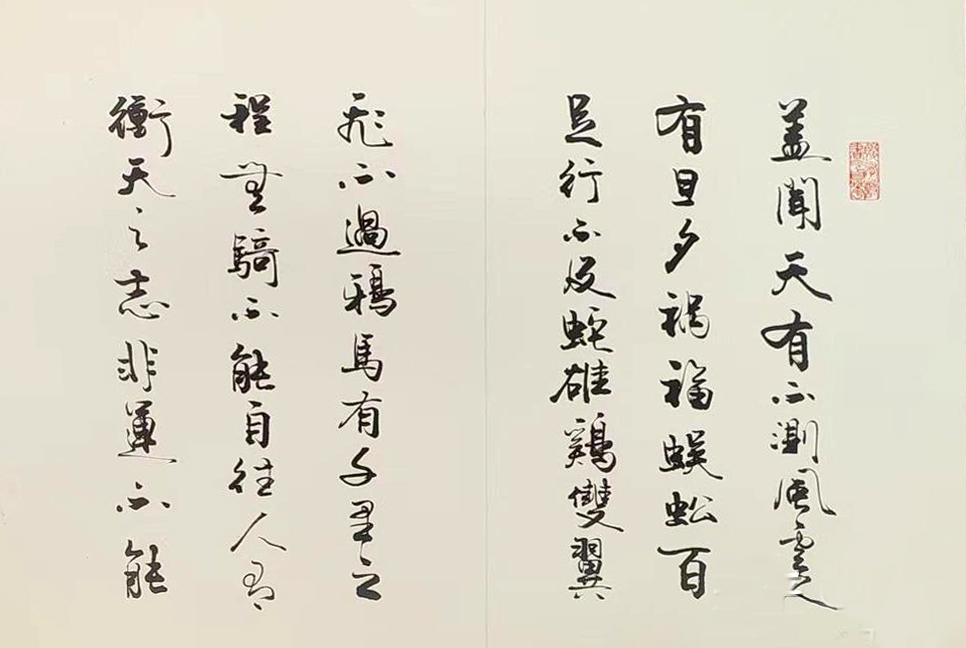 盖聞天有不測風雲人
有旦夕禍福蜈蚣百
足行不及蛇雄鷄雙翼
飛不過鴉馬有千里之
程無騎不能自往人有
衝天之志非運不能